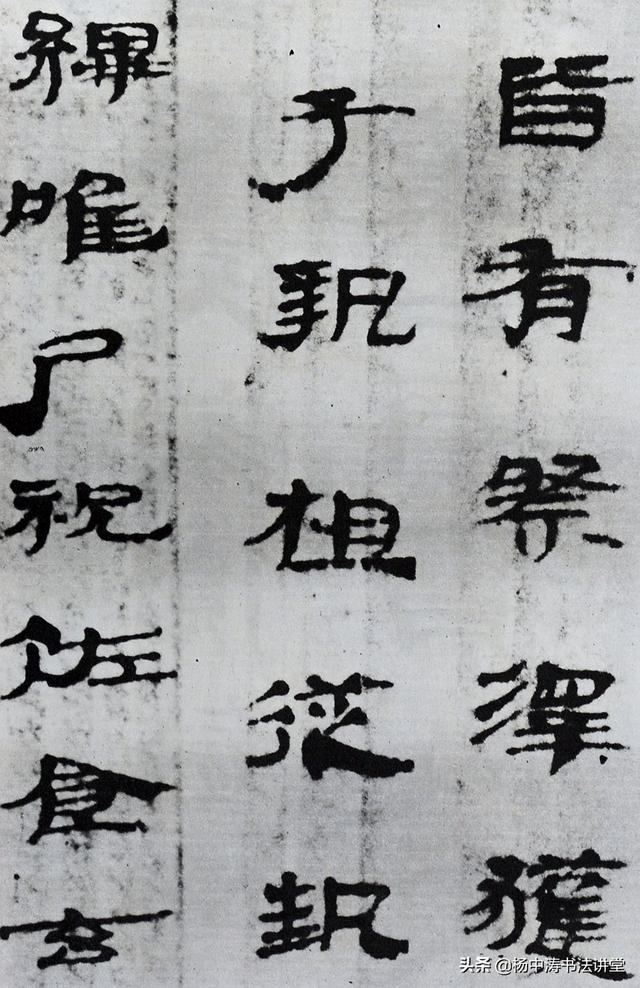 皆有祭澤獲
子執祖從執
韠唯尸祝佐食玄
头条 @杨中涛书法讲堂